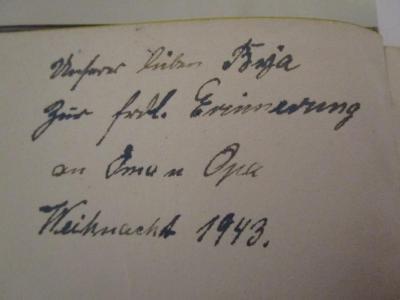 Unserer lieben
zur frdl. Erinnerung
an Oma u Opa
Weihnacht 1943.